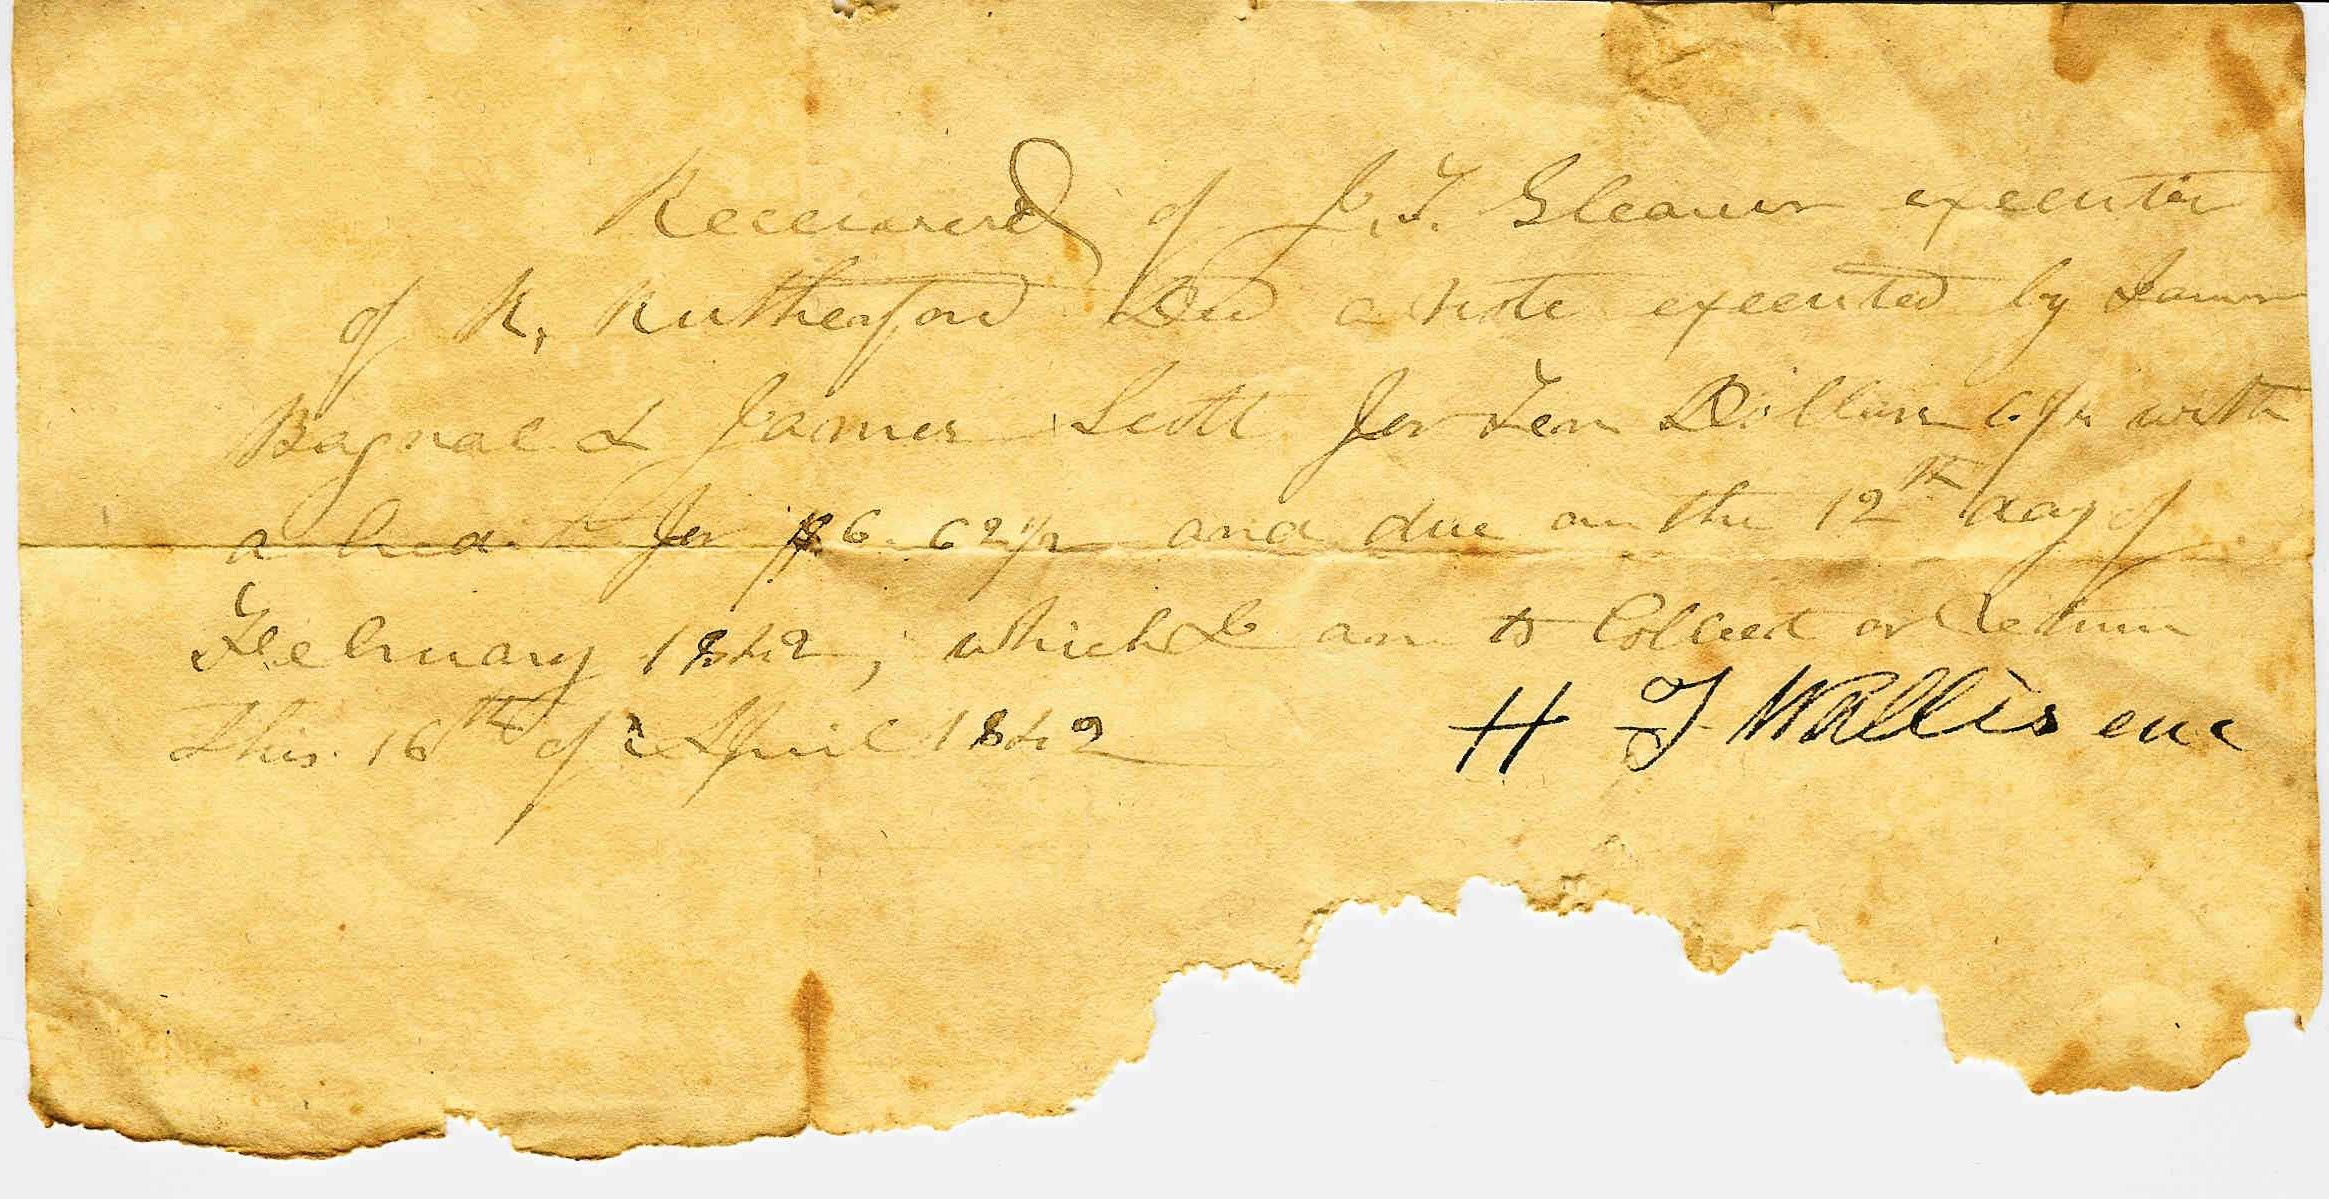 Receiverd of J. T. Gleaver executer
of R. Rutherford Decd a note executed by James
Bagnal & James Scott for Ten Dollars 6¼ with
a for $6.62½ and due on the 12th day of
February 1842, which I am to Collect or Return
This 16th of April 1842 H T Wallis